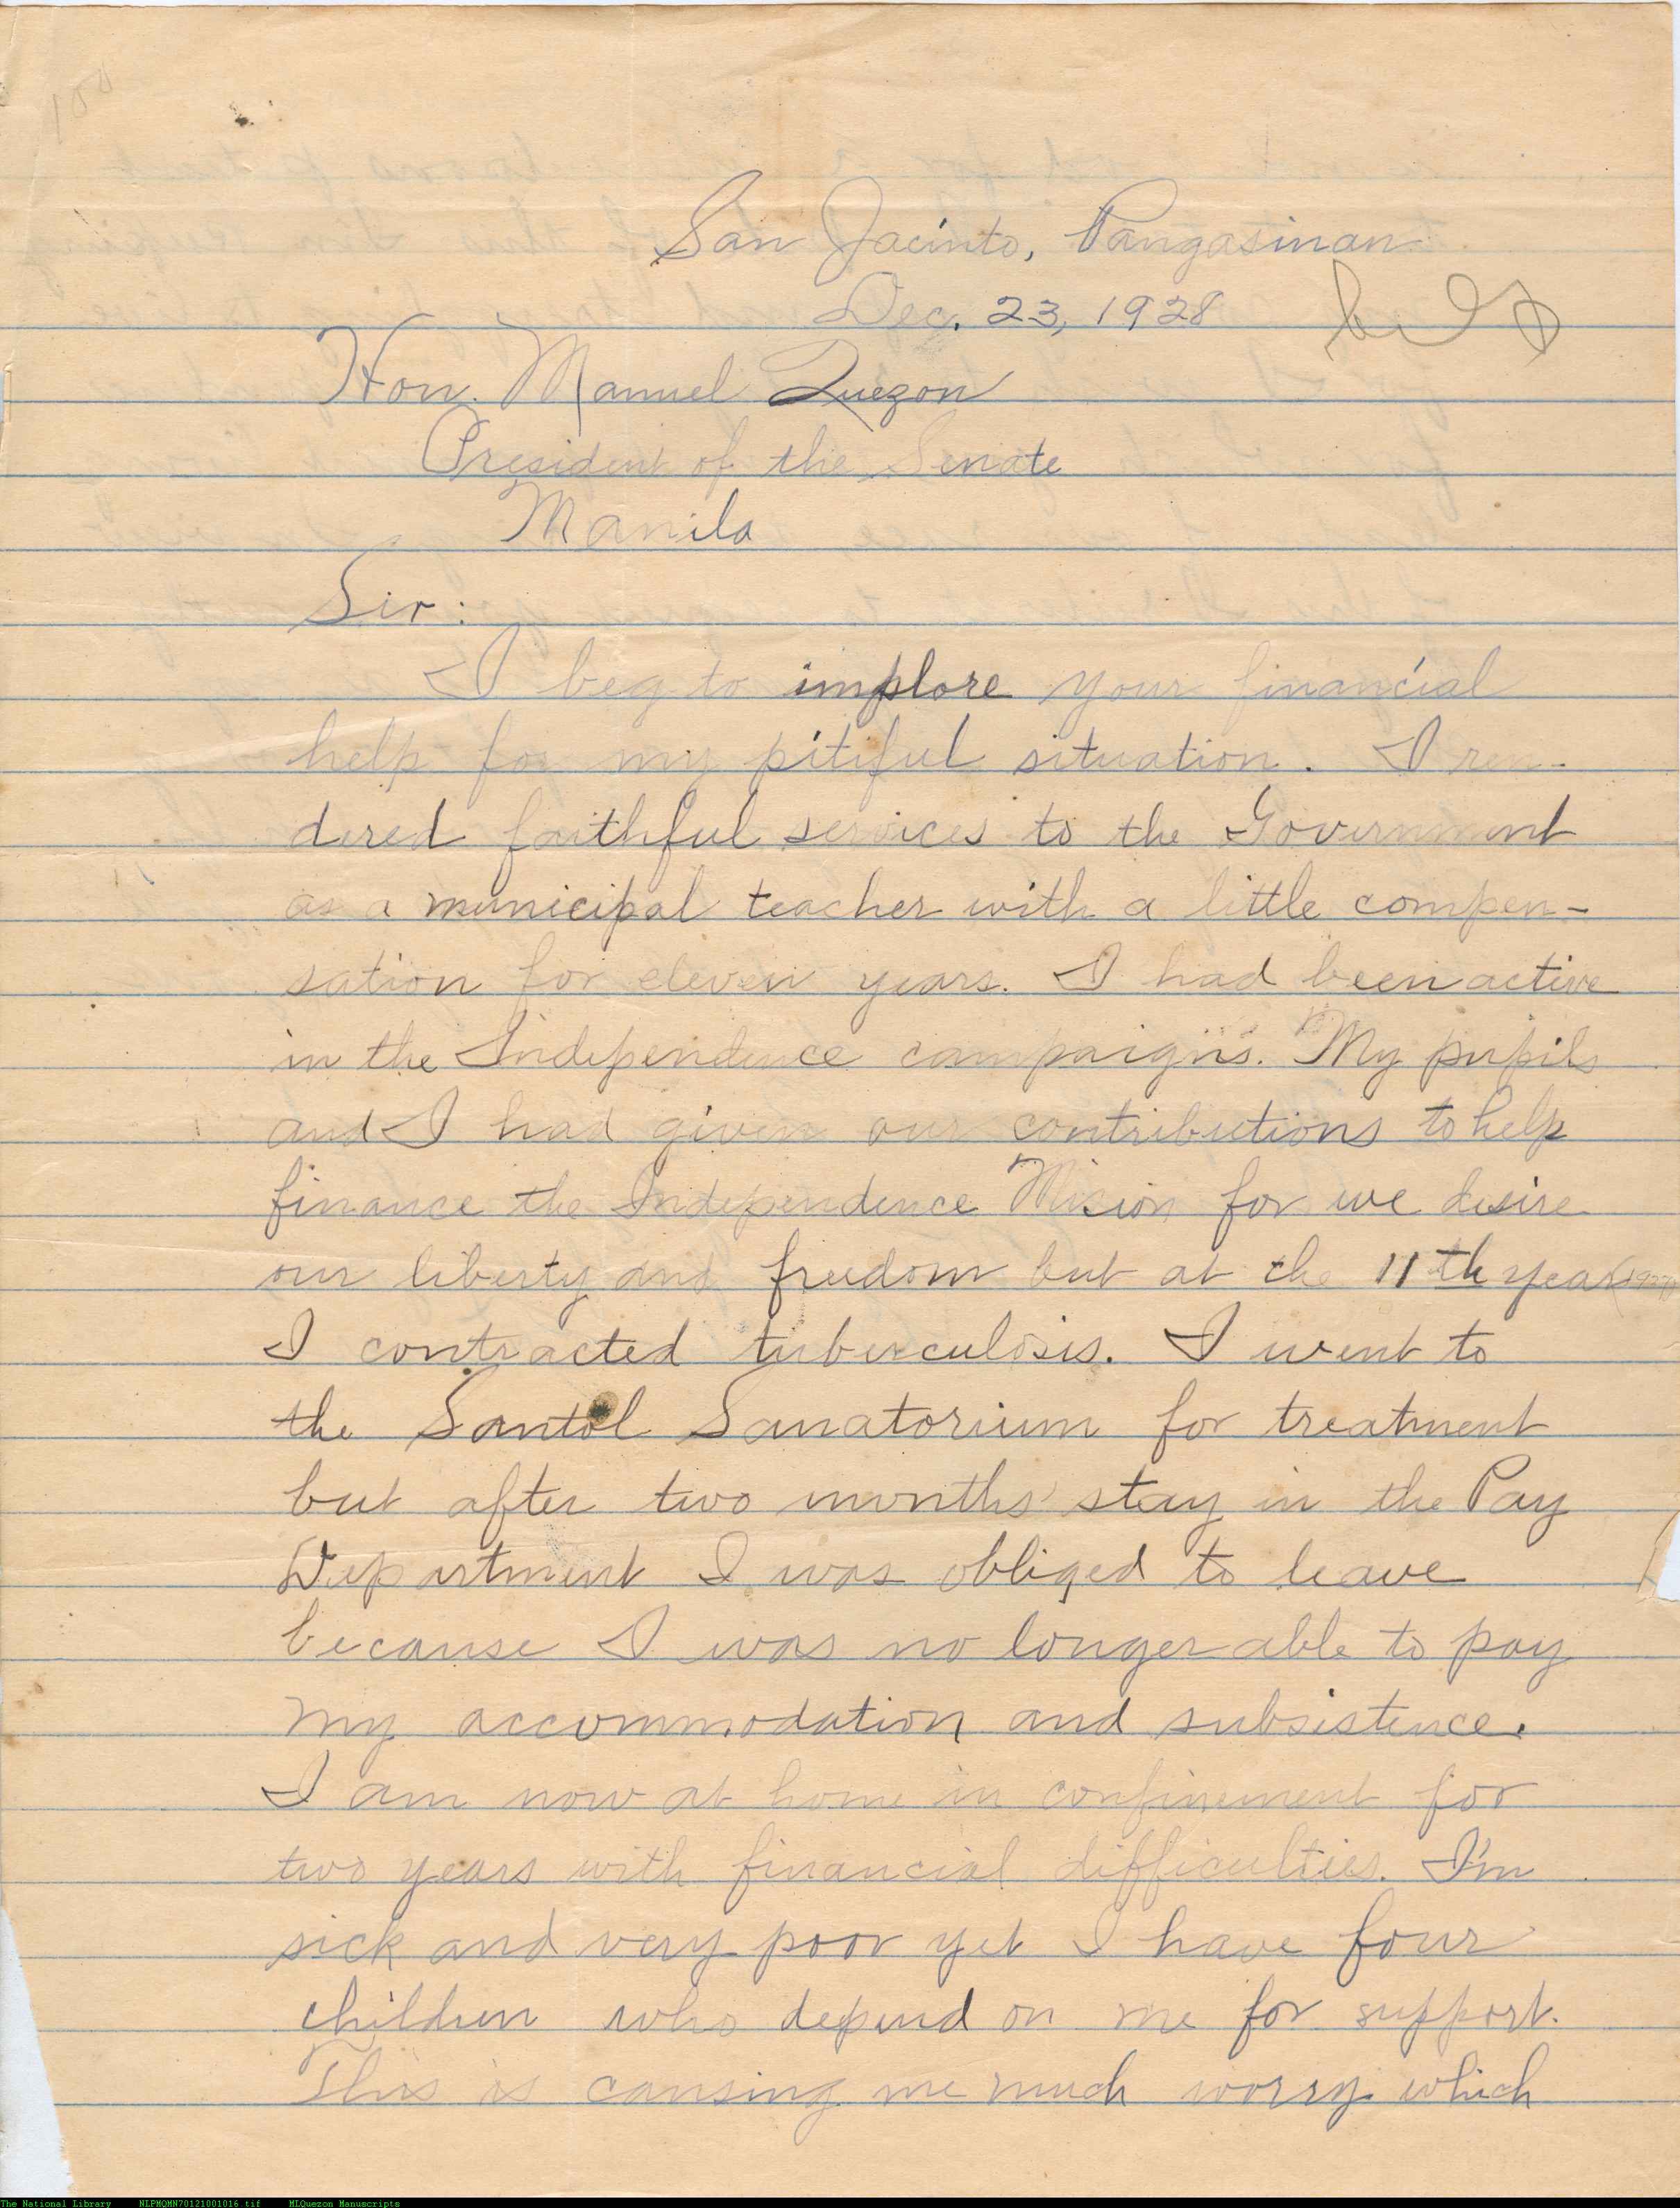 100
San Jacinto, Pangasinan
Dec. 23, 1928
Hon. Manuel Quezon
President of the Senate
Manila
Sir:
I beg to implore your financial
help for my pitiful situation. I ren-
dered faithful services to the Government
as a municipal teacher with a little compen-
sation for eleven years. I had been active
in the Independence campaigns. My pupils
and I had given our contributions to help
finance the Independence Mision for we desire
our liberty and freedom but at the 11th year (1927)
I contracted tuberculosis. I went to
the Santol Sanatorium for treatment
but after two months' stay in the Pay
Department I was obliged to leave
because I was no longer able to pay
my accommodation and subsistence.
I am now at home in confinement for
two years with financial difficulties. I'm
sick and very poor yet I have four
children who depend on me for support.
This is causing me much worry which
The National Library NLPMQMN70121001016.tif MLQuezon Manuscripts